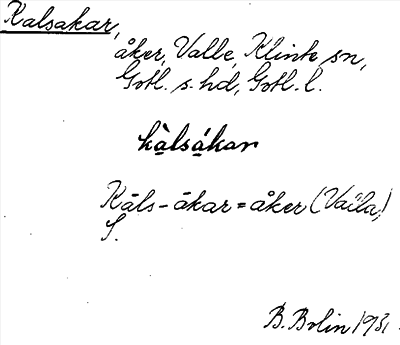 Kalsakar,
åker, Valle, Klinte sn,
Gotl. s. hd, Gotl. l.
kàlsákar
Kāls-ākar = åker (Vaila)
S.
B. Bolin 1931.